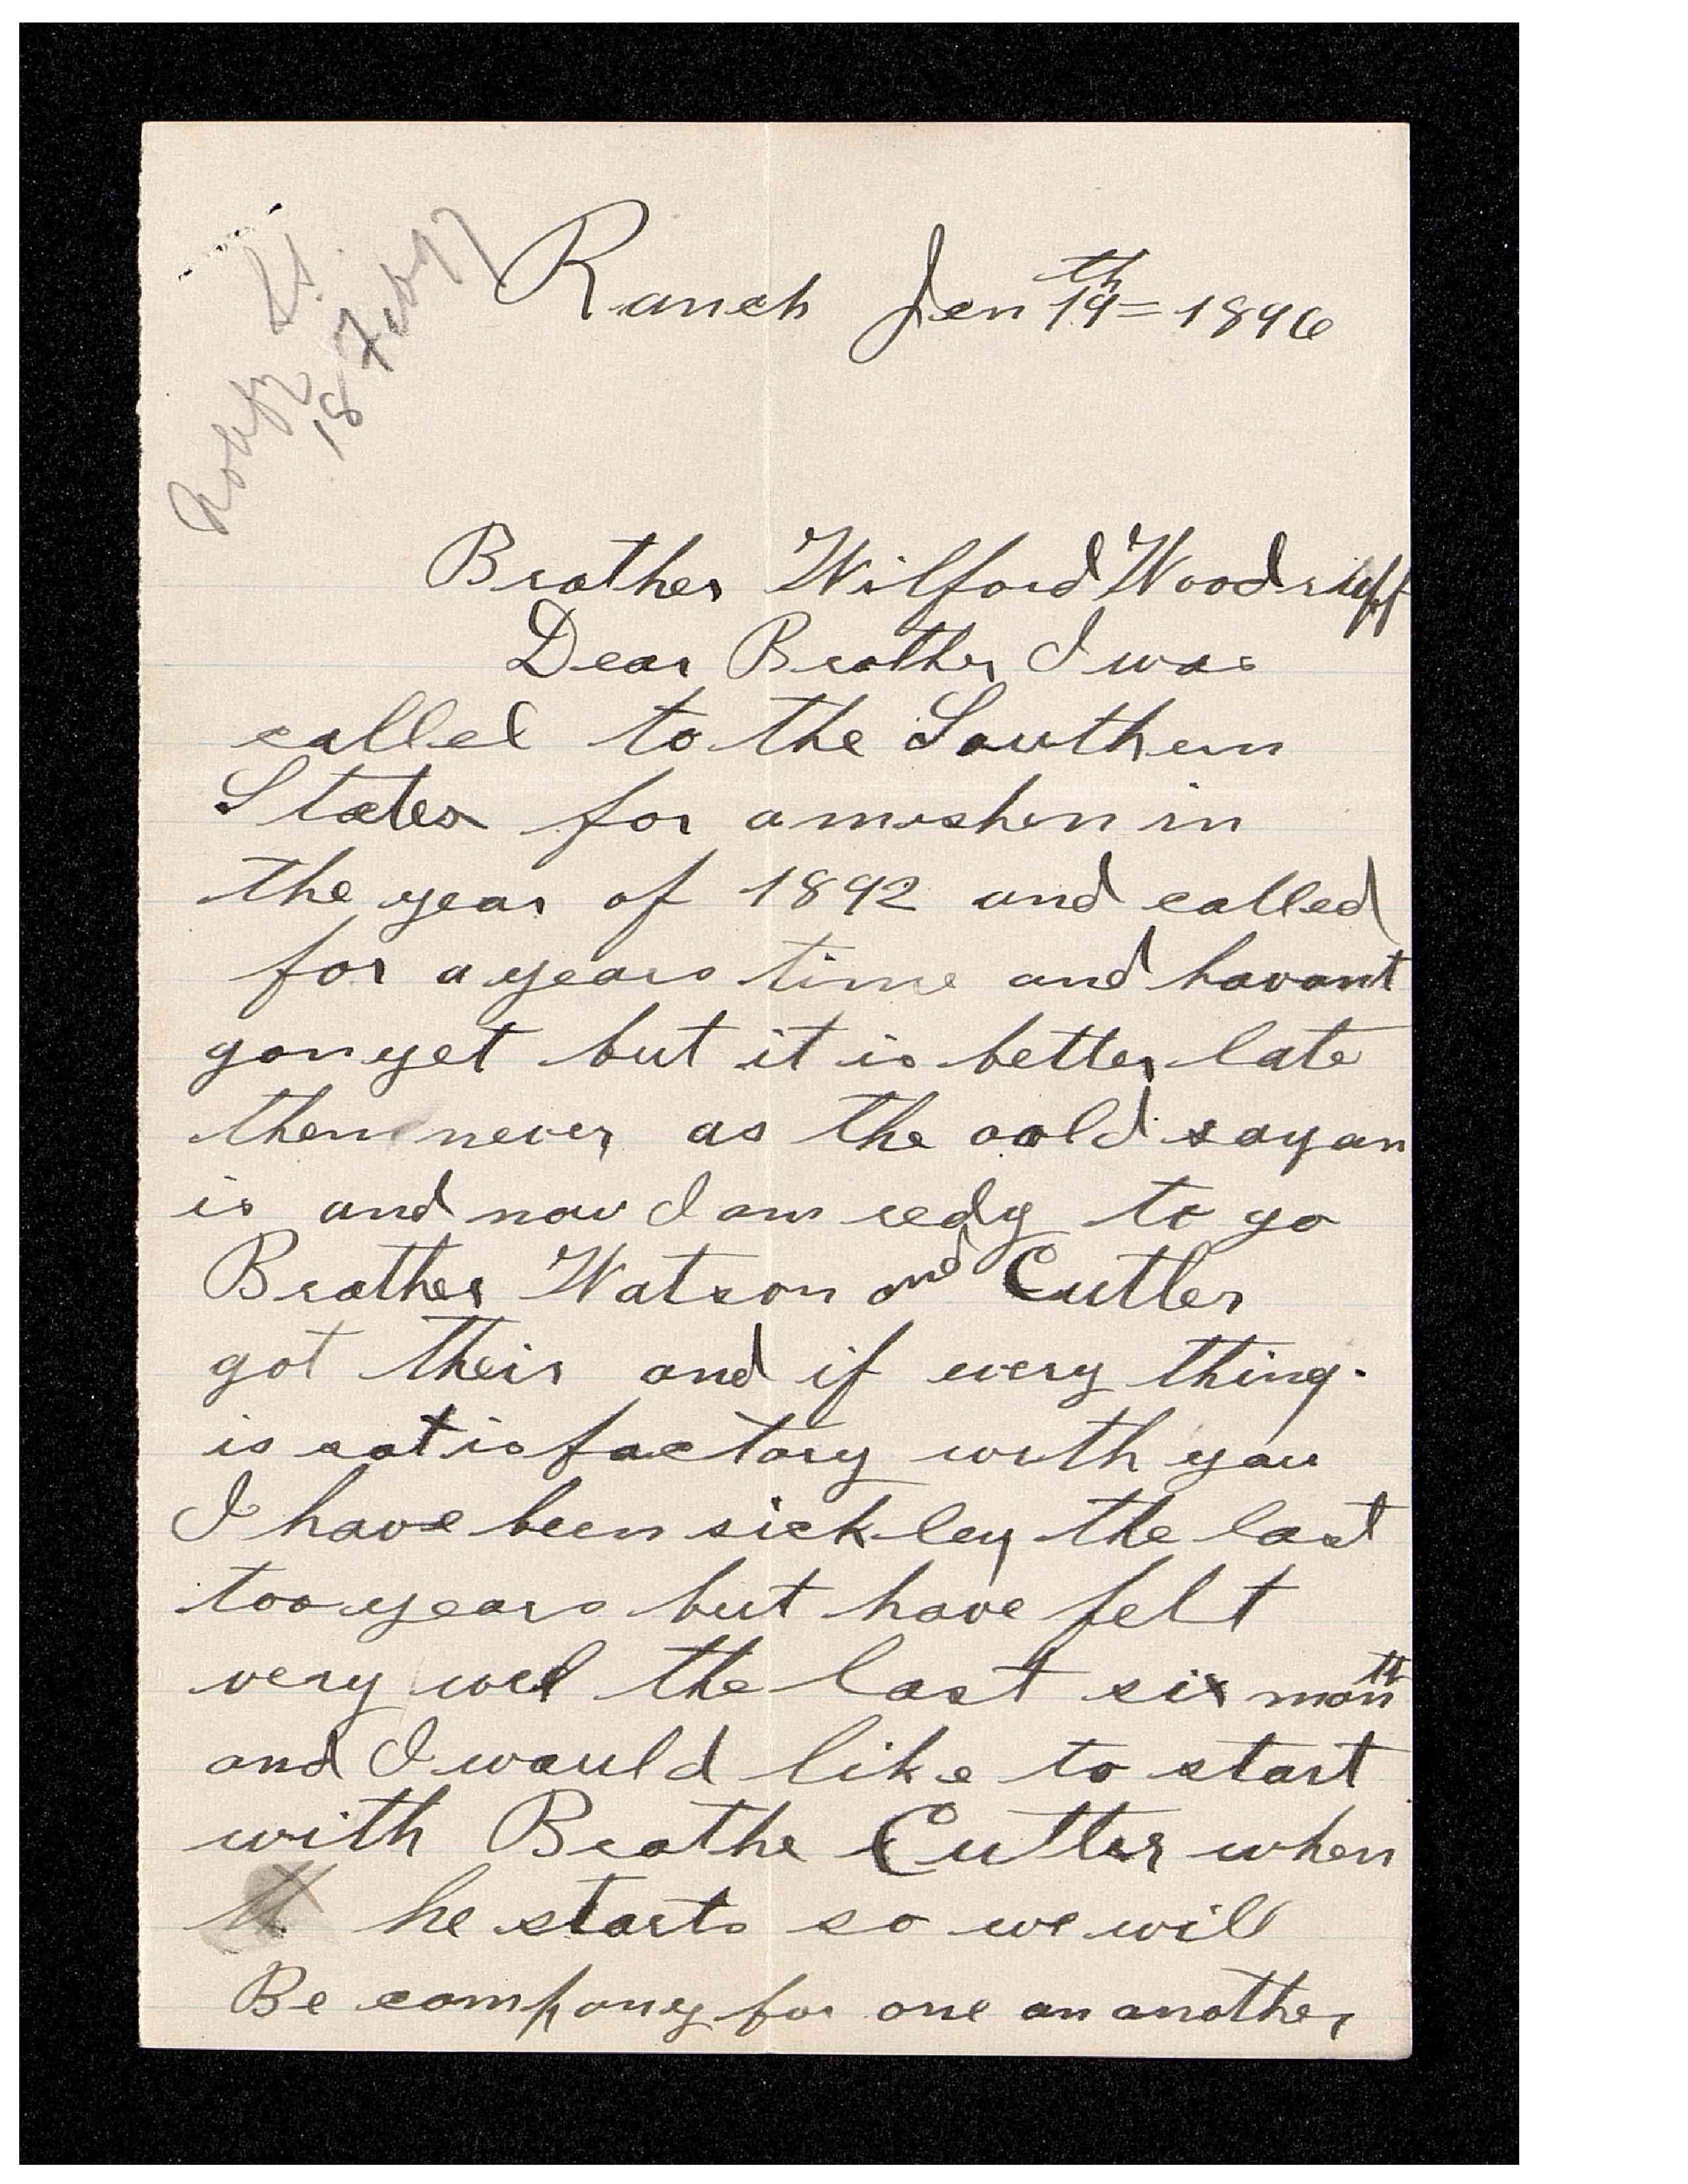 18 Feby
Ranch Jen 19th = 1896
Brother Wilford Woodruff
Dear Brother I was
called to the Southern
States for a mishen in
the year of 1892 and called
for a years time and havant
gon yet but it is better late
then never as the oald sayan
is and now I am redy to go
Brother Watson and Cutler
got their and if every thing
is satisfactory with you
I have been sickley the last
too years but have felt
very wel the last six month
and I would like to start
with Brothe Cutler when
he starts so we will
Be company for one an another